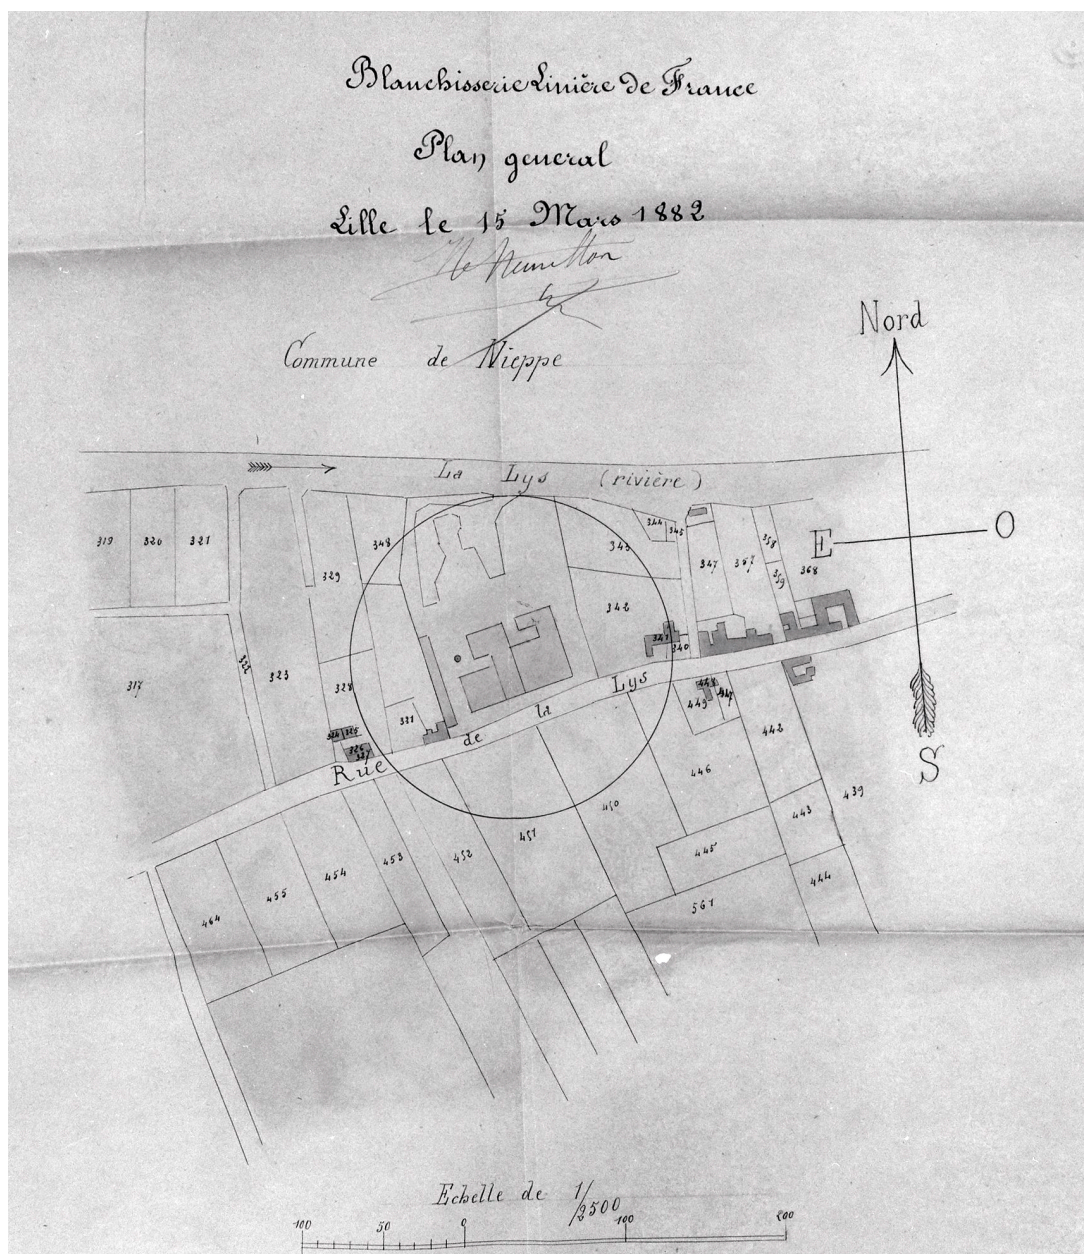 Blanchisserie Linière de France
Plan general
Lille le 15 Mars 1882
Commune de Nieppe
Nord
La Lys (rivière)
E O
S
319 320 321
329 348
344 345
343
347 367 358
359 368
342
341 340
317 322 323
328
321
324 325
326
327
Rue de la Lys
448 447
449
442
446
439
443
450
451
445
444
452
453
454
455
464
561
Echelle de 1/2500
100 50 0 100 200